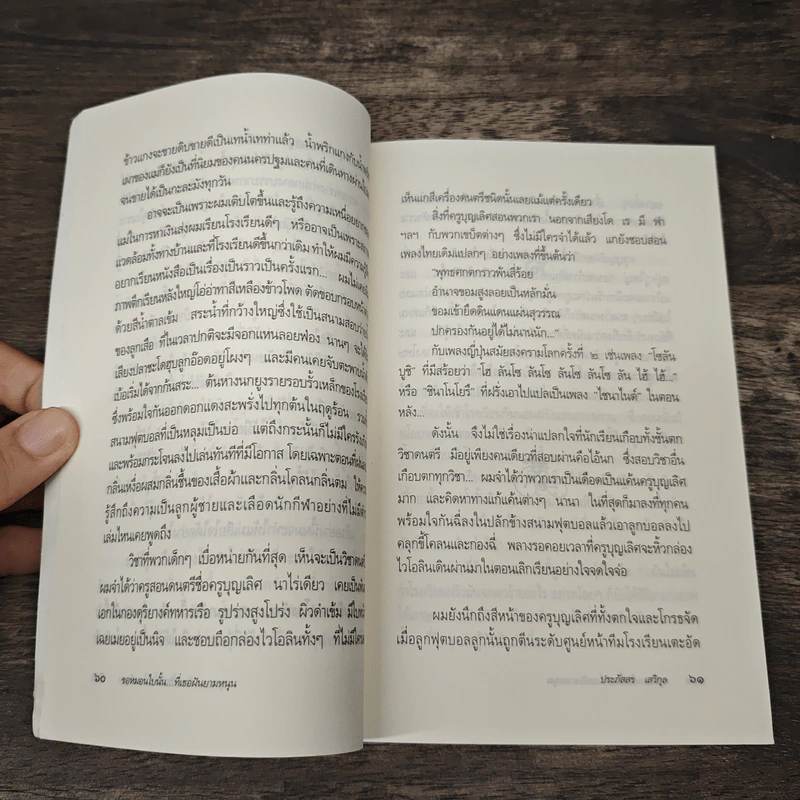 ข้าวแกงจะขายดิบขายดีเป็นเทน้ำเทท่าแล้ว น้ำพริกแกงกับน้ำ
เผาของแม่ก็ยังเป็นที่นิยมของคนนครปฐมและคนที่เดินทางผ่าน
จนขายได้เป็นกะละมังทุกวัน
อาจจะเป็นเพราะผมเติบโตขึ้นและรู้ถึงความเหนื่อยยาก
แม่ในการหาเงินส่งผมเรียนโรงเรียนดีๆ หรืออาจเป็นเพราะ
แวดล้อมทั้งทางบ้านและที่โรงเรียนดีขึ้นกว่าเดิม ทำให้ผมมีความ
อยากเรียนหนังสือเป็นเรื่องเป็นราวเป็นครั้งแรก... ผมไม่เคย
ภาพตึกเรียนหลังใหญ่โอ่อ่าทาสีเหลืองข้าวโพด ตัดขอบกรอบหน้า
ด้วยสีน้ำตาลเข้ม สระน้ำที่กว้างใหญ่ซึ่งใช้เป็นสนามสอบว่าย
ของลูกเสือ ที่ในเวลาปกติจะมีจอกแหนลอยฟ่อง นานๆ จะได้
เสียงปลาชะโดฮุบลูกอ๊อดอยู่โผงๆ และมีคนเคยจับตะพาบ
เบ้อเริ่มได้จากก้นสระ... ต้นหางนกยูงรายรอบรั้วเหล็กของโรงเรียน
ซึ่งพร้อมใจกันออกดอกแดงสะพรั่งไปทุกต้นในฤดูร้อน รวม
สนามฟุตบอลที่เป็นหลุมเป็นบ่อ แต่ถึงกระนั้นก็ไม่มีใครรังเกียจ
และพร้อมกระโจนลงไปเล่นทันทีที่มีโอกาส โดยเฉพาะตอนที่ฝน
กลิ่นเหงื่อผสมกลิ่นชื้นของเสื้อผ้าและกลิ่นโคลนกลิ่นตม ให้ความ
รู้สึกถึงความเป็นลูกผู้ชายและเลือดนักกีฬาอย่างที่ไม่มี
เล่มไหนเคยพูดถึง
วิชาที่พวกเด็กๆ เบื่อหน่ายกันที่สุด เห็นจะเป็นวิชาดนตรี
ผมจำได้ว่าครูสอนดนตรีชื่อครูบุญเลิศ นาไร่เดียว เคยเป็น
เอกในกองดุริยางค์ทหารเรือ รูปร่างสูงโปร่ง ผิวดำเข้ม มีใบหน้า
เฉยเมยอยู่เป็นนิจ และชอบถือกล่องไวโอลินทั้งๆ ที่ไม่มีใคร
๖๐ ขอหมอนใบนั้น...ที่เธอฝันยามหนุน
เห็นแกสีเครื่องดนตรีชนิดนั้นเลยแม้แต่ครั้งเดียว
สิ่งที่ครูบุญเลิศสอนพวกเรา นอกจากเสียงโด เร มี ฟา
ฯลฯ กับพวกเขบ็ตต่างๆ ซึ่งไม่มีใครจำได้แล้ว แกยังชอบสอน
เพลงไทยเดิมแปลกๆ อย่างเพลงที่ขึ้นต้นว่า
"พุทธศกตกราวพันสี่ร้อย
อำนาจขอมสูงลอยเป็นหลักมั่น
ขอมเข้ายึดดินแดนแผ่นสุวรรณ
ปกครองกันอยู่ได้ไม่นานนัก..."
กับเพลงญี่ปุ่นสมัยสงครามโลกครั้งที่ ๒ เช่นเพลง "โซลัน
บูชิ" ที่มีสร้อยว่า "โฮ ลันโซ ลันโซ ลันโซ ลันโซ ลัน ไฮ้ ไฮ้..."
หรือ "ชินาโนโยรึ" ที่ฝรั่งเอาไปแปลเป็นเพลง "ไชนาไนต์" ในตอน
หลัง...
ดังนั้น จึงไม่ใช่เรื่องน่าแปลกใจที่นักเรียนเกือบทั้งชั้นตก
วิชาดนตรี มีอยู่เพียงคนเดียวที่สอบผ่านคือไอ้นก ซึ่งสอบวิชาอื่น
เกือบตกทุกวิชา... ผมจำได้ว่าพวกเราเป็นเดือดเป็นแค้นครูบุญเลิศ
มาก และคิดหาทางแก้แค้นต่างๆ นานา ในที่สุดก็มาลงที่ทุกคน
พร้อมใจกันฉี่ลงในปลักข้างสนามฟุตบอลแล้วเอาลูกบอลลงไป
คลุกขี้โคลนและกองฉี่ พลางรอคอยเวลาที่ครูบุญเลิศจะหิ้วกล่อง
ไวโอลินเดินผ่านมาในตอนเลิกเรียนอย่างใจจดใจจ่อ
ผมยังนึกถึงสีหน้าของครูบุญเลิศที่ทั้งตกใจและโกรธจัด
เมื่อลูกฟุตบอลลูกนั้นถูกตีนระดับศูนย์หน้าทีมโรงเรียนเตะอัด
ประภัสสร เสวิกุล ๖๑